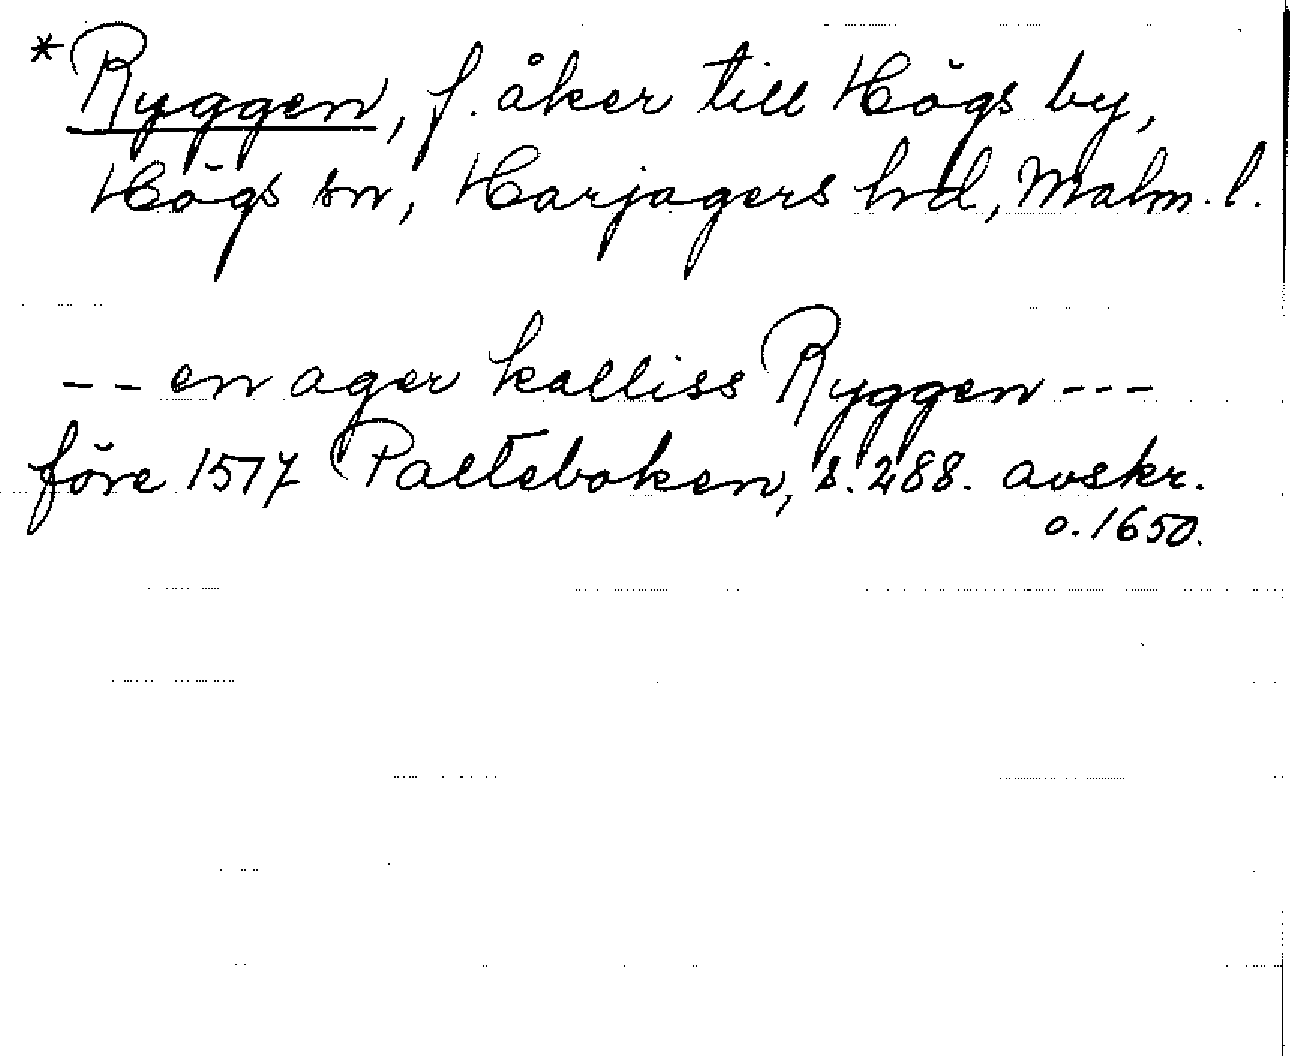 *Ryggen, f. åker till Högs by,
Högs sn, Harjagers hd, Malm. l.
-- en ager kalliss Ryggen ---
före 1517 Palteboken, s. 288. avskr.
o. 1650.